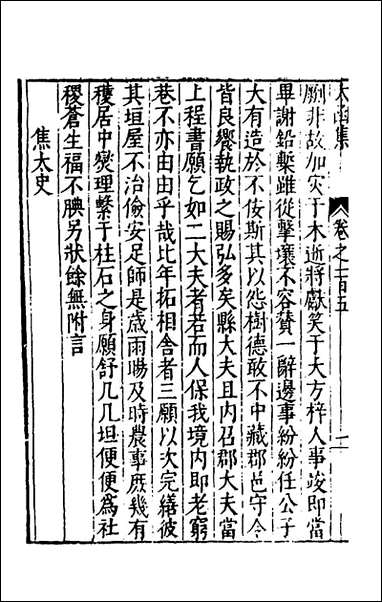 太函集
卷之一百五
二
劂非故加灾于木逝將獻笑于大方梓人事竣即當
畢謝鉛槧雖從擊壤不容贊一辭邊事紛紛任公子
大有造於不佞斯其以怨樹德敢不中藏郡邑守令
皆良饗執政之賜弘多矣縣大夫且内召郡大夫當
上程書願乞如二大夫者若而人保我境内即老窮
巷不亦由由乎哉比年拓相舍者三願以次完繕彼
其垣屋不治儉安足師是歳雨暘及時農事庶幾有
穫居中燮理繫于柱石之身願舒几几坦便便為社
稷蒼生福不腆另狀餘無附言
焦太史